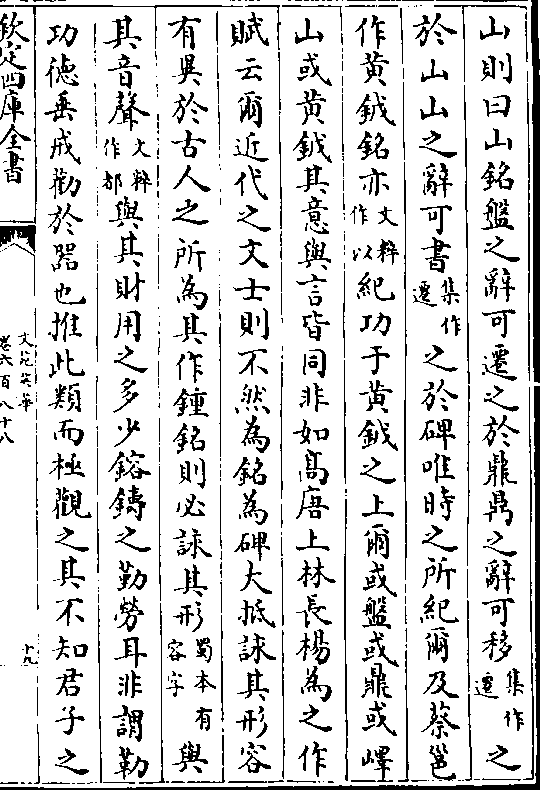 山則曰山銘盤之辭可遷之於鼎鼎之辭可移集作遷之
於山山之辭可書集作遷之於碑唯時之所紀爾及蔡邕
作黄鉞銘亦文粹作以紀功于黄鉞之上爾或盤或鼎或嶧
山或黄鉞其意與言皆同非如髙唐上林長楊為之作
賦云爾近代之文士則不然為銘為碑大抵詠其形容
有異於古人之所為其作鍾銘則必詠其形蜀本有容字與
其音聲文粹作都與其財用之多少鎔鑄之勤勞耳非謂勒
功徳垂戒勸於器也推此類而極觀之其不知君子之
欽定四庫全書
文苑英華
卷六百八十八
十九